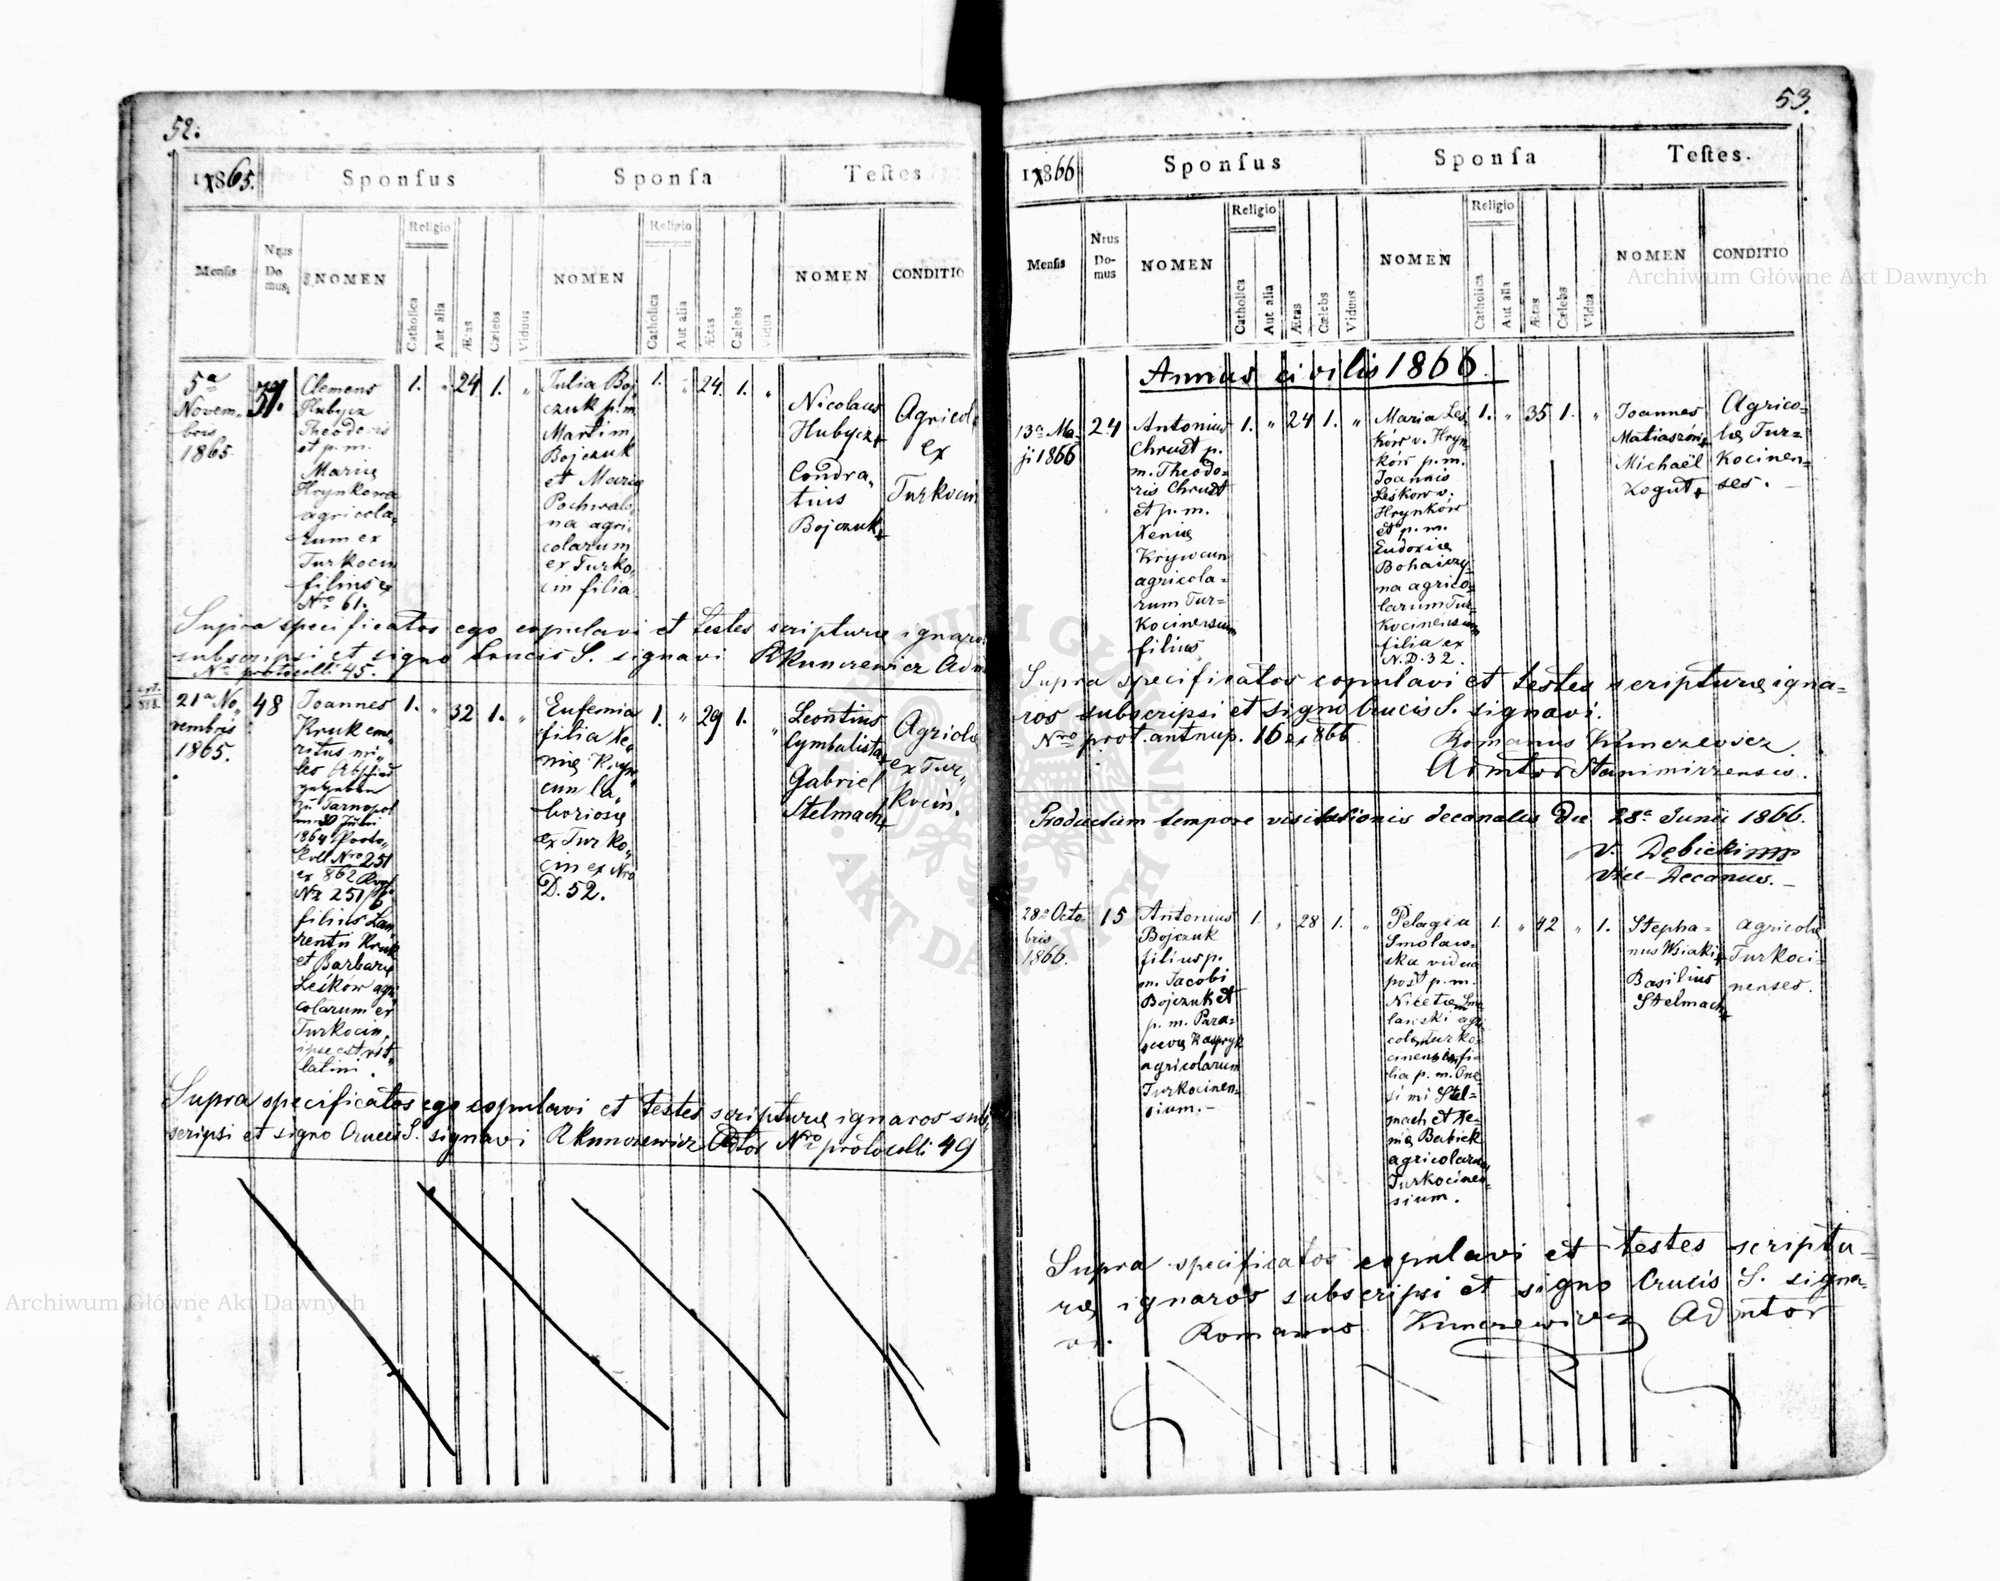 52.
1865.
Sponsus
Sponsa
Testes
Mensis
Nrus Domus
NOMEN
Religio
Catholica
Aut alia
Ætas
Cœlebs
Viduus
NOMEN
Religio
Catholica
Aut alia
Ætas
Cœlebs
Vidua
NOMEN
CONDITIO
5a
Novem„
bris
1865.
Clemens
Hubycz
Theodoris
et p. m.
Mariæ
Hrynkowa
agricola„
rum ex
Turkocin
filius ex
Nro 61.
1. „ 24 1. „
Julia Boj
czuk p. m.
Martini
Bojczuk
et Mariæ
Pochwalo„
na agri„
colarum
ex Turko„
cin filia.
1. „ 24. 1. „
Nicolaus
Hubycz+
Condra„
tius
Bojczuk+
Agricol
ex
Turkocin
Supra specificatos ego copulavi et testes scripturæ ignaros
subscripsi et signo Crucis S. signavi RKunczewicz Adm
Nro protocolli 45.
21a No„
vembris
1865.
48
Joannes
Kruk eme„
ritus mi„
les Abschied
gegeben
zu Tarnopol
am 30 Juli
1864 Proto„
koll Nro 251
ex 862
Nr 251/
filius Lau„
rentii Kruk
et Barbaræ
Leśków agri
colarum ex
Turkocin,
ipse est rit„
latini.
1. „ 32 1. „
Eufemia
filia
cun la„
boriosæ
ex Turko„
cin ex Nro
D. 52.
1. „ 29 1. „
Leontius
Cymbalista+
Gabriel
Stelmach+
Agricolæ
ex Tur„
kocin.
Supra specificatos ego copulavi et testes scripturæ ignaros sub„
scripsi et signo Crucis S. signavi RKunczewicz Adtor Nro protocolli 49
53.
1866
Sponsus
Sponsa
Testes.
Mensis
Nrus Do-mus
NOMEN
Religio
Catholica
Aut alia
Ætas
Cœlebs
Viduus
NOMEN
Religio
Catholica
Aut alia
Ætas
Cœlebs
Vidua
NOMEN
CONDITIO
Annus civilis 1866.
13a Ma=
ji 1866
24
Antonius
Chrust p.
m. Theodo=
ris Chrust
et p. m.
Xeniæ
Krywcun
agricola=
rum Tur=
kocinensium
filius
1. „ 24 1. „
Maria Leś
ków v. Hryn
ków p. m.
Joannis
Leśkow v.
Hrynków
et p. m.
Eudoxiæ
Bohaiczy=
na agrico=
larum Tur=
kocinensium
filia ex
N. D. 32.
1. „ 35 1. „
Joannes
Matiaszów+
Michaël
Kogut+
Agrico=
læ Tur=
kocinen=
ses. —
Supra specificatos copulavi et testes scripturæ igna=
ros subscripsi et signo Crucis S. signavi.
Nro prot. antnup. 16 ex 866
Romanus Kunczewicz.
Admtor Stanimirzensis.
Productum tempore visitationis decanalis die 28a Junii 1866.
V. Debicki mp
Vice-Decanus.—
28a Octo
bris
1866.
15
Antonius
Bojczuk
filius p.
m. Jacobi
Bojczuk et
p. m. Para=
scevæ Kaspryk
agricolarum
Turkocinen=
sium.—
1. „ 28 1. „
Pelagia
Smolaw=
ska vidua
post p. m.
Nicetæ Smo
lawski agri
colæ Turko=
cinensis fi=
lia p. m. One
simi Stel=
mach et Xe=
niæ Babiek
agricolarum
Turkocinen=
sium.
1. „ 42 „ 1.
Stepha=
nus Wsiaki+
Basilius
Stelmach+
Agricolæ
Turkoci=
nenses.
Supra specificatos copulavi et testes scriptu=
ræ ignaros subscripsi et signo Crucis S. signa=
vi. Romanus Kunczewicz Admtor
Archiwum Główne Akt Dawnych
Archiwum Główne Akt Dawnych